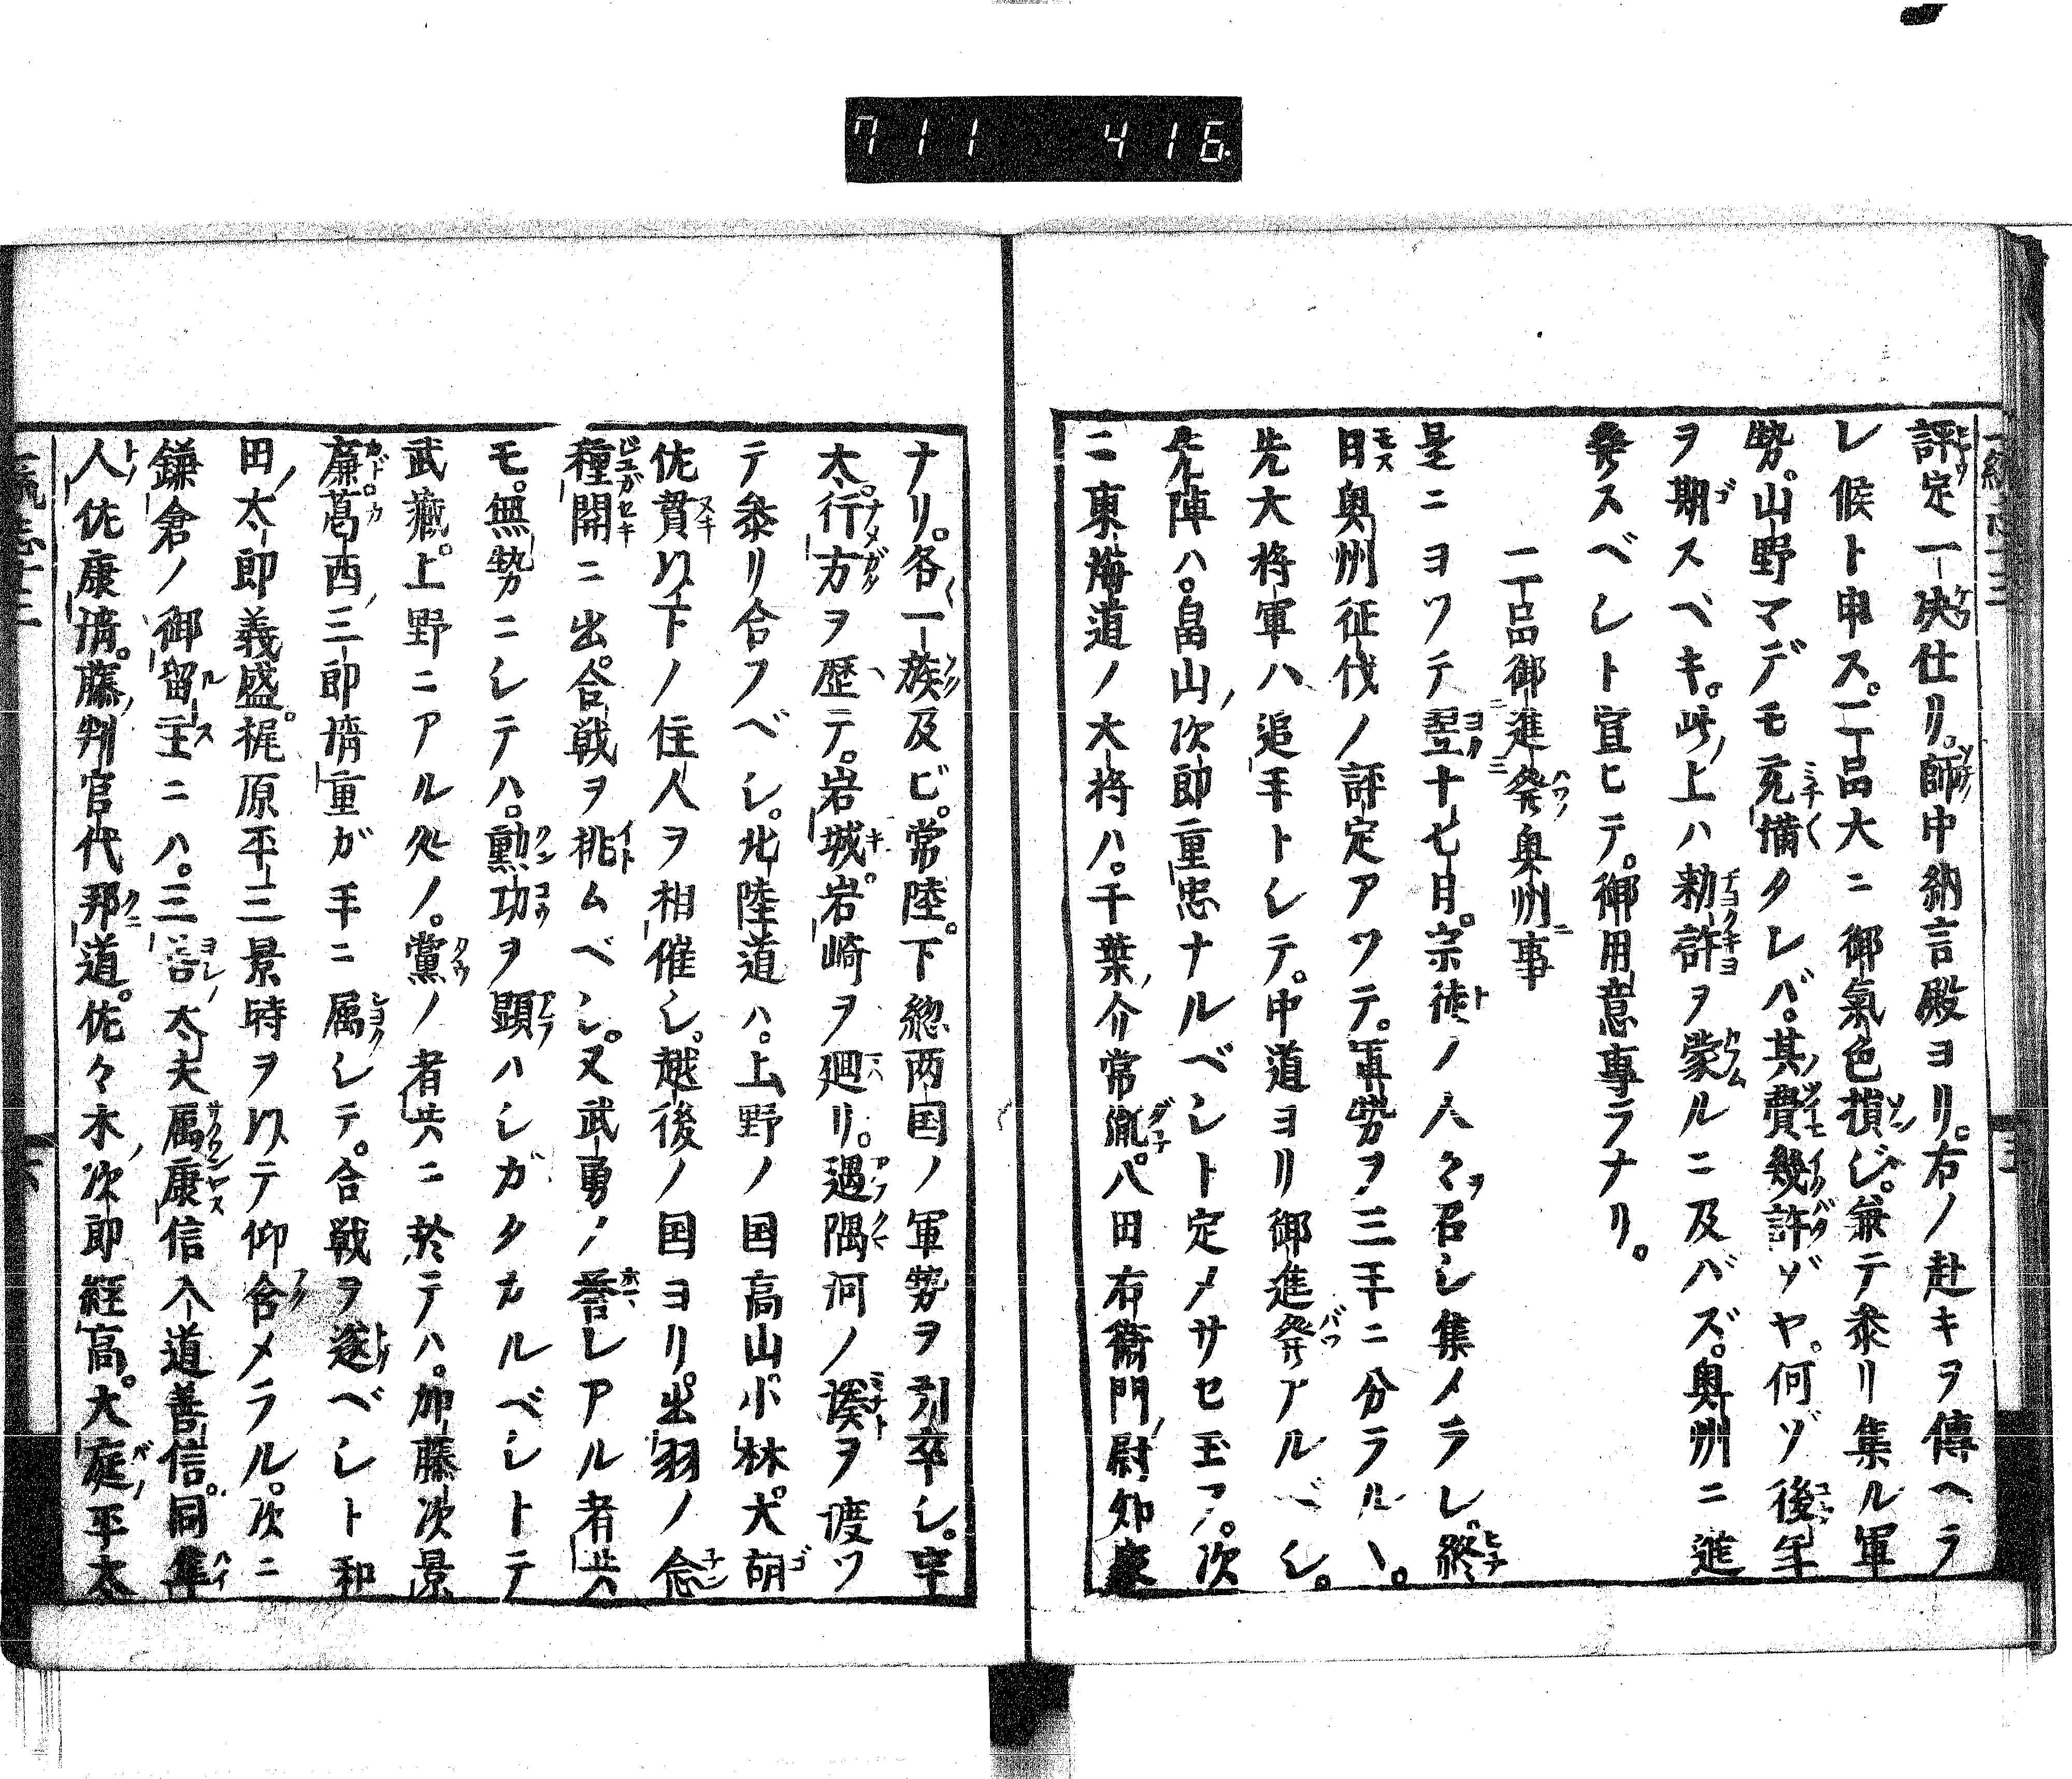 711 416
評定一決仕リ。師中納言殿ヨリ。右ノ赴キヲ傳ヘラ
レ候ト申ス。二品大ニ御氣色損ジ。兼テ叅リ集ル軍
勢。山野マデモ充備タレバ。其費幾許ゾヤ。何ゾ後年
ヲ期スベキ。此上ハ勅許ヲ蒙ルニ及バズ。奥州ニ進
発スベシト宣ヒテ。御用意專ラナリ。
二品御進発奥州事
是ニヨツテ翌十七日。宗徒ノ人々召シ集メラレ。終
日奥州征伐ノ評定アツテ。軍勢ヲ三手ニ分ラル丶。
先大将軍ハ追手トシテ。中道ヨリ御進発アルベシ。
先陣ハ。畠山次郎重忠ナルベシト定メサセ玉フ。次
ニ東海道ノ大将ハ。千葉介常胤。八田右衛門尉知家
ナリ。各一族及ビ。常陸。下總両国ノ軍勢ヲ引卒シ。宇
太。行方ヲ歴テ。岩城。岩崎ヲ廻リ。遇隅河ノ湊ヲ渡ツ
テ叅リ合フベシ。北陸道ハ。上野ノ国高山。小林。大胡
佐貫以下ノ住人ヲ相催シ。越後ノ国ヨリ。出羽ノ念
種関ニ出。合戦ヲ挑ムベシ。又武勇ノ誉レアル者共
モ。無勢ニシテハ。勲功ヲ顕ハシガタカルベシトテ
武藏。上野ニアル処ノ。黨ノ者共ニ於テハ。加藤次景
廉。葛西三郎清重ガ手ニ属シテ。合戦ヲ遂ベシト和
田太郎義盛。梶原平三景時ヲ以テ仰含メラル。次ニ
鎌倉ノ御留主ニハ。三善太夫属康信入道善信。同隼
人佐康清。藤判官代邦道。佐々木次郎経高。大庭平太